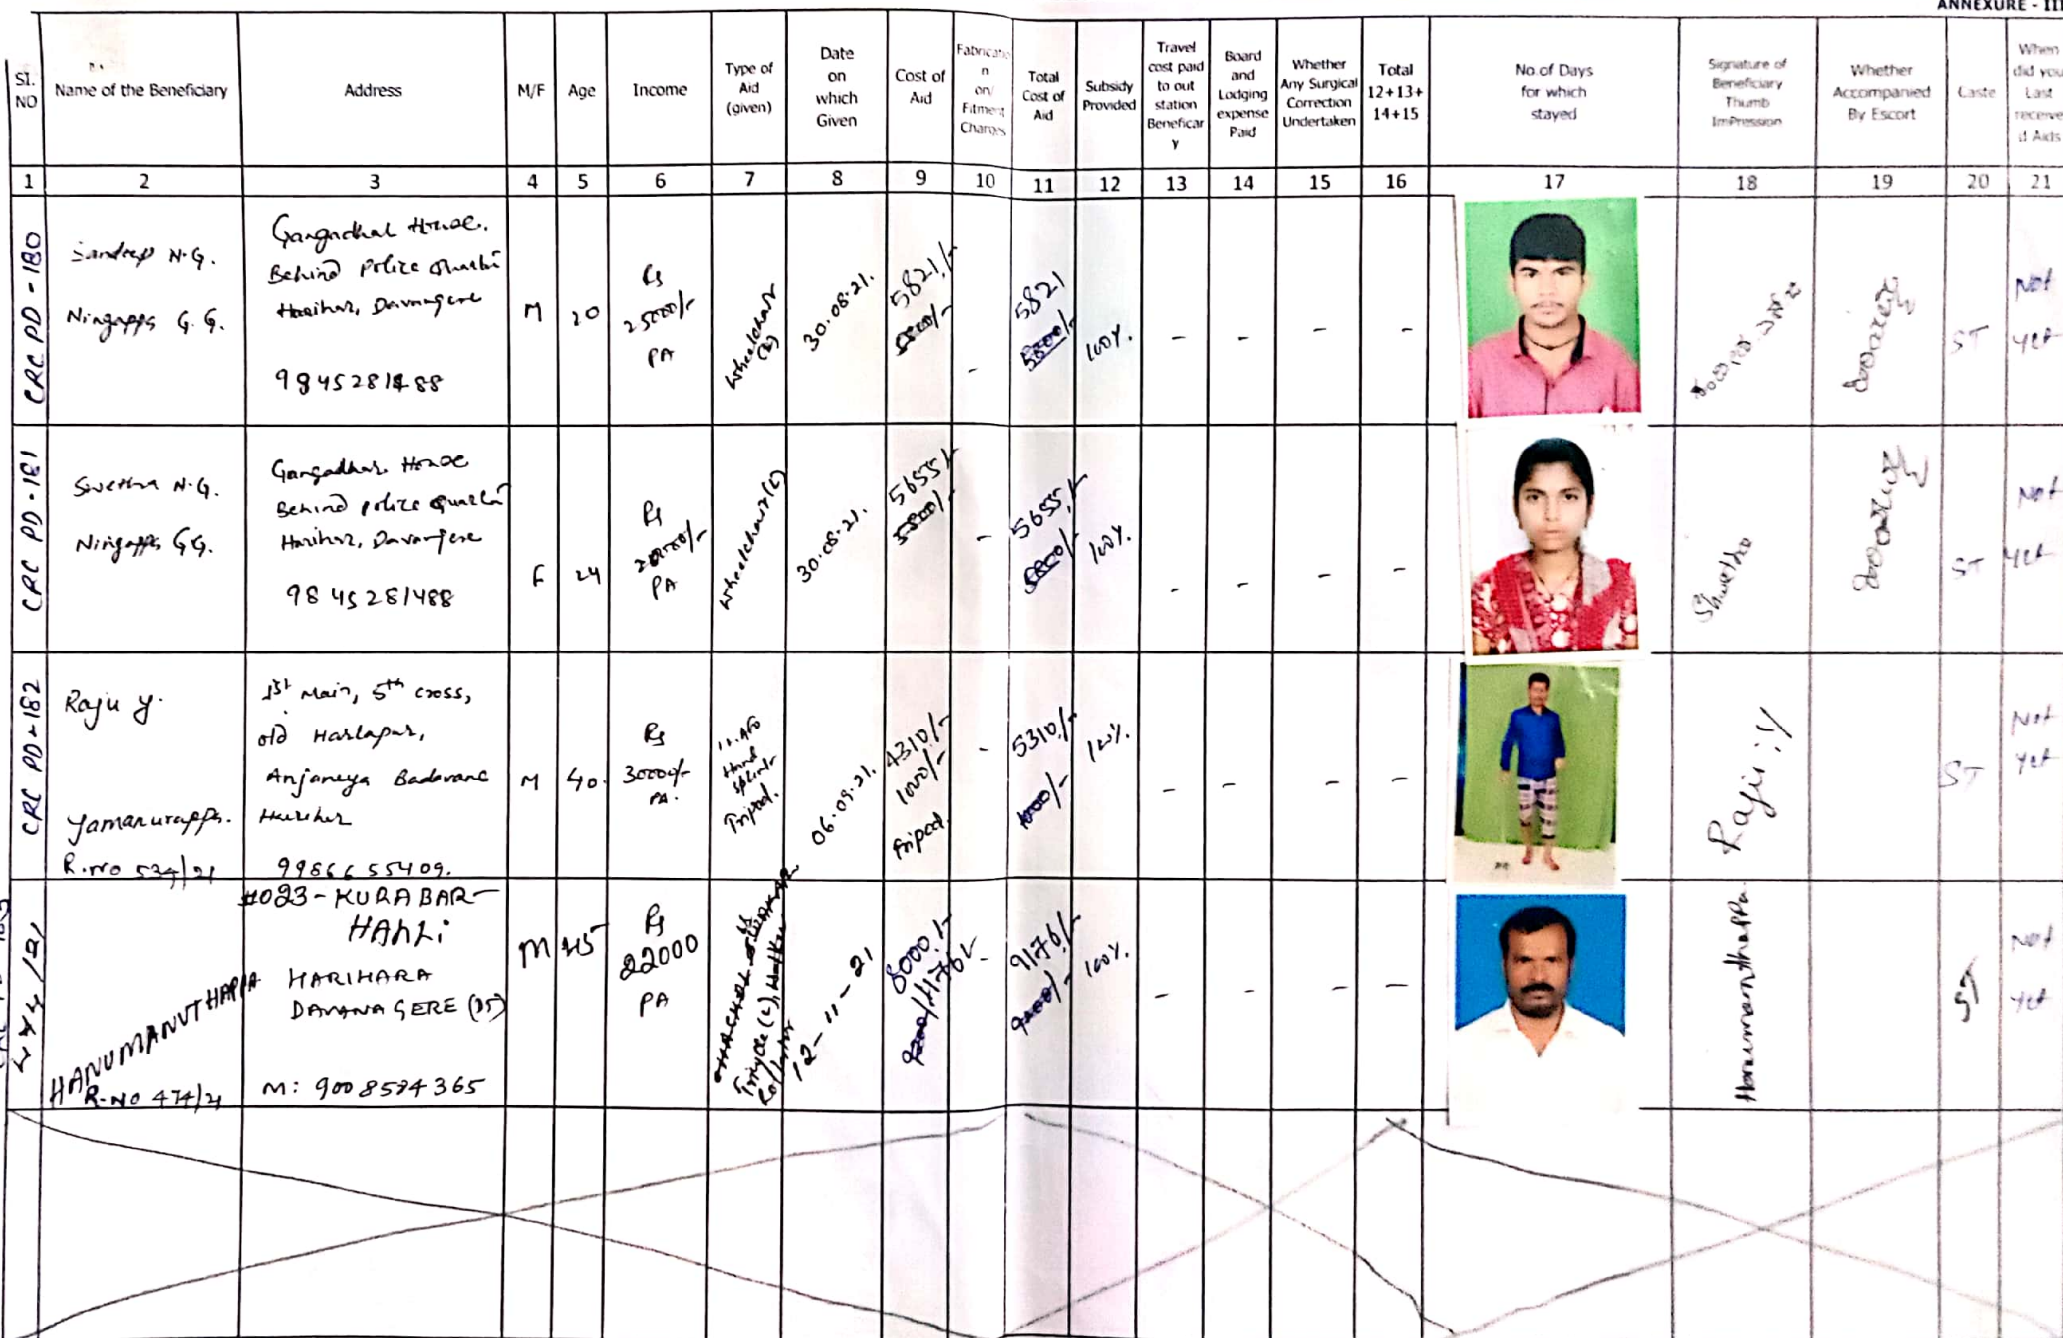 ANNEXURE - III
Sl. NO
Name of the Beneficiary
Address
M/F
Age
Income
Type of Aid (given)
Date on which Given
Cost of Aid
Fabricatio n on/ Fitment Charges
Total Cost of Aid
Subsidy Provided
Travel cost paid to out station Beneficar y
Board and Lodging expense Paid
Whether Any Surgical Correction Undertaken
Total 12+13+ 14+15
No.of Days for which stayed
Signature of Beneficiary Thumb ImPression
Whether Accompanied By Escort
Caste
When did you Last receive d Aids
1 2 3 4 5 6 7 8 9 10 11 12 13 14 15 16 17 18 19 20 21
CRC PD - 180
Sandeep N.G.
Ningappa G.G.
Gangadhar House.
Behind Police
Harihar, Davangere
M
20
Rs
25000/-
PA
wheelchair
30.08.21.
5821/-
5800/-
-
5821
5800/-
100%.
- - - -
ST
Not
yet
CRC PD - 181
Swetha N.G.
Ningappa G.G.
Gangadhar House
Behind police
Harihar, Davangere
98 45 281488
F
24
Rs
PA
wheelchair
30.08.21.
5655/-
5800/-
-
5655/-
5800/-
100%.
- - - -
Shwetha
ST
Not
yet
CRC PD - 182
Raju y.
Yamanurappa.
R.no 534/21
1st Main, 5th cross,
old Harlapur,
Anjaneya Badavane
Harihar
99866 55409.
M
40.
Rs
30000/-
PA.
Hand
splint
Tripod.
06.09.21.
4310/-
1000/-
Tripod.
-
5310/-
1000/-
100%.
- - - -
Raju :y
ST
Not
yet
HANUMANUTHAPPA
R-No 474/21
#023-KURABAR-
HALLi
HARIHARA
DAVANAGERE (DT)
M: 9008584365
M
45
Rs
22000
PA
Tricycle
Rollator
12-11-21
8000/-
-
9176/-
100%.
- - - -
Hanumanthappa
ST
Not
yet